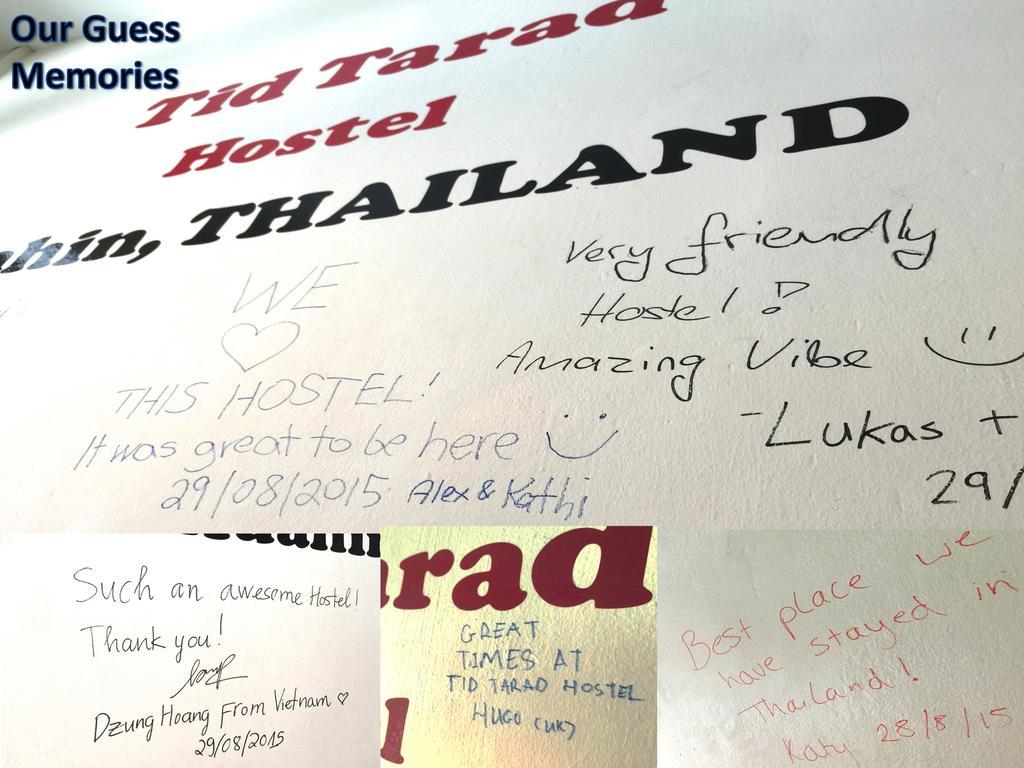 Our Guess
Memories
Tid Tarad
Hostel
hin, THAILAND
WE
♡
THIS HOSTEL!
It was great to be here :)
29/08/2015 Alex & Kathi
Very friendly
Hostel!
Amazing Vibe :)
-Lukas +
29/
Such an awesome Hostel!
Thank you!
Dzung Hoang From Vietnam ♡
29/08/2015
arad
l
GREAT
TIMES AT
TID TARAD HOSTEL
HUGO (UK)
Best place we
have stayed in
Thailand!
Katy 28/8/15